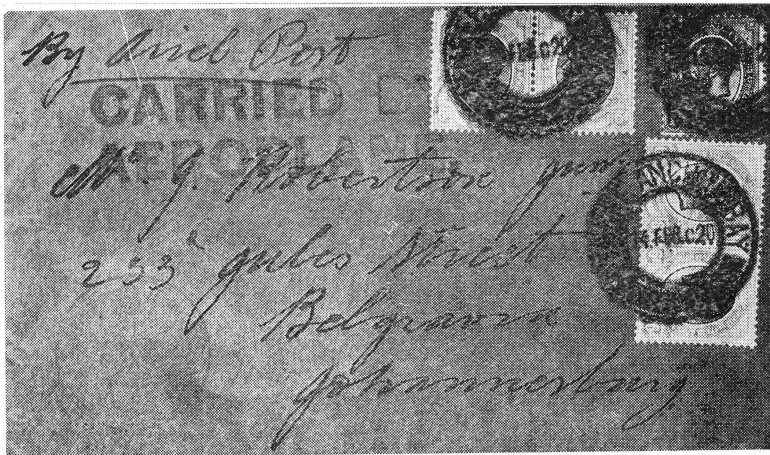 By Ariel Post
CARRIED BY
AEROPLANE
Mr J. Robertson junr
233 Jules Street
Belgravia
Johannesburg
FEB.C20
FEB.C20